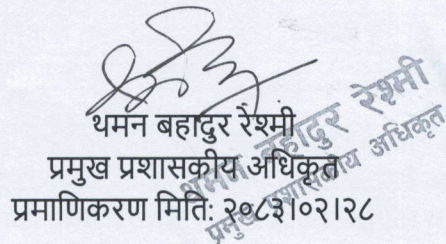 थमन बहादुर रेश्मी
प्रमुख प्रशासकीय अधिकृत
प्रमाणिकरण मितिः २०८३।०२।२८
थमन बहादुर रेश्मी
प्रमुख प्रशासकीय अधिकृत